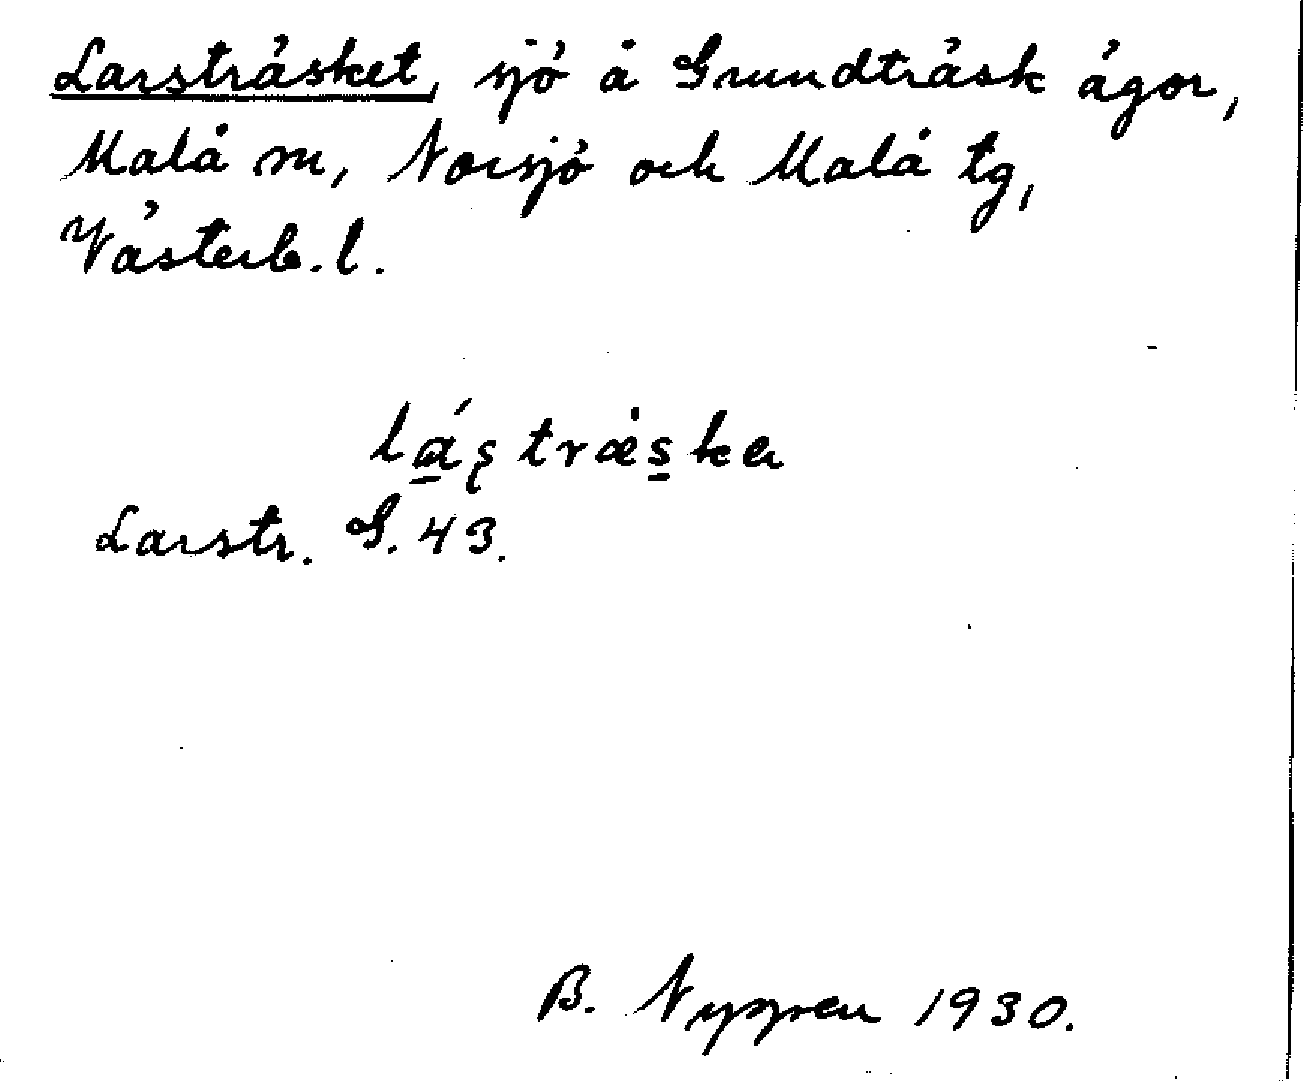 Larsträsket, sjö å Grundträsk ägor,
Malå sn, Norsjö och Malå tg,
Västerb. l.
Larstr. G. 43.
B. 1930.